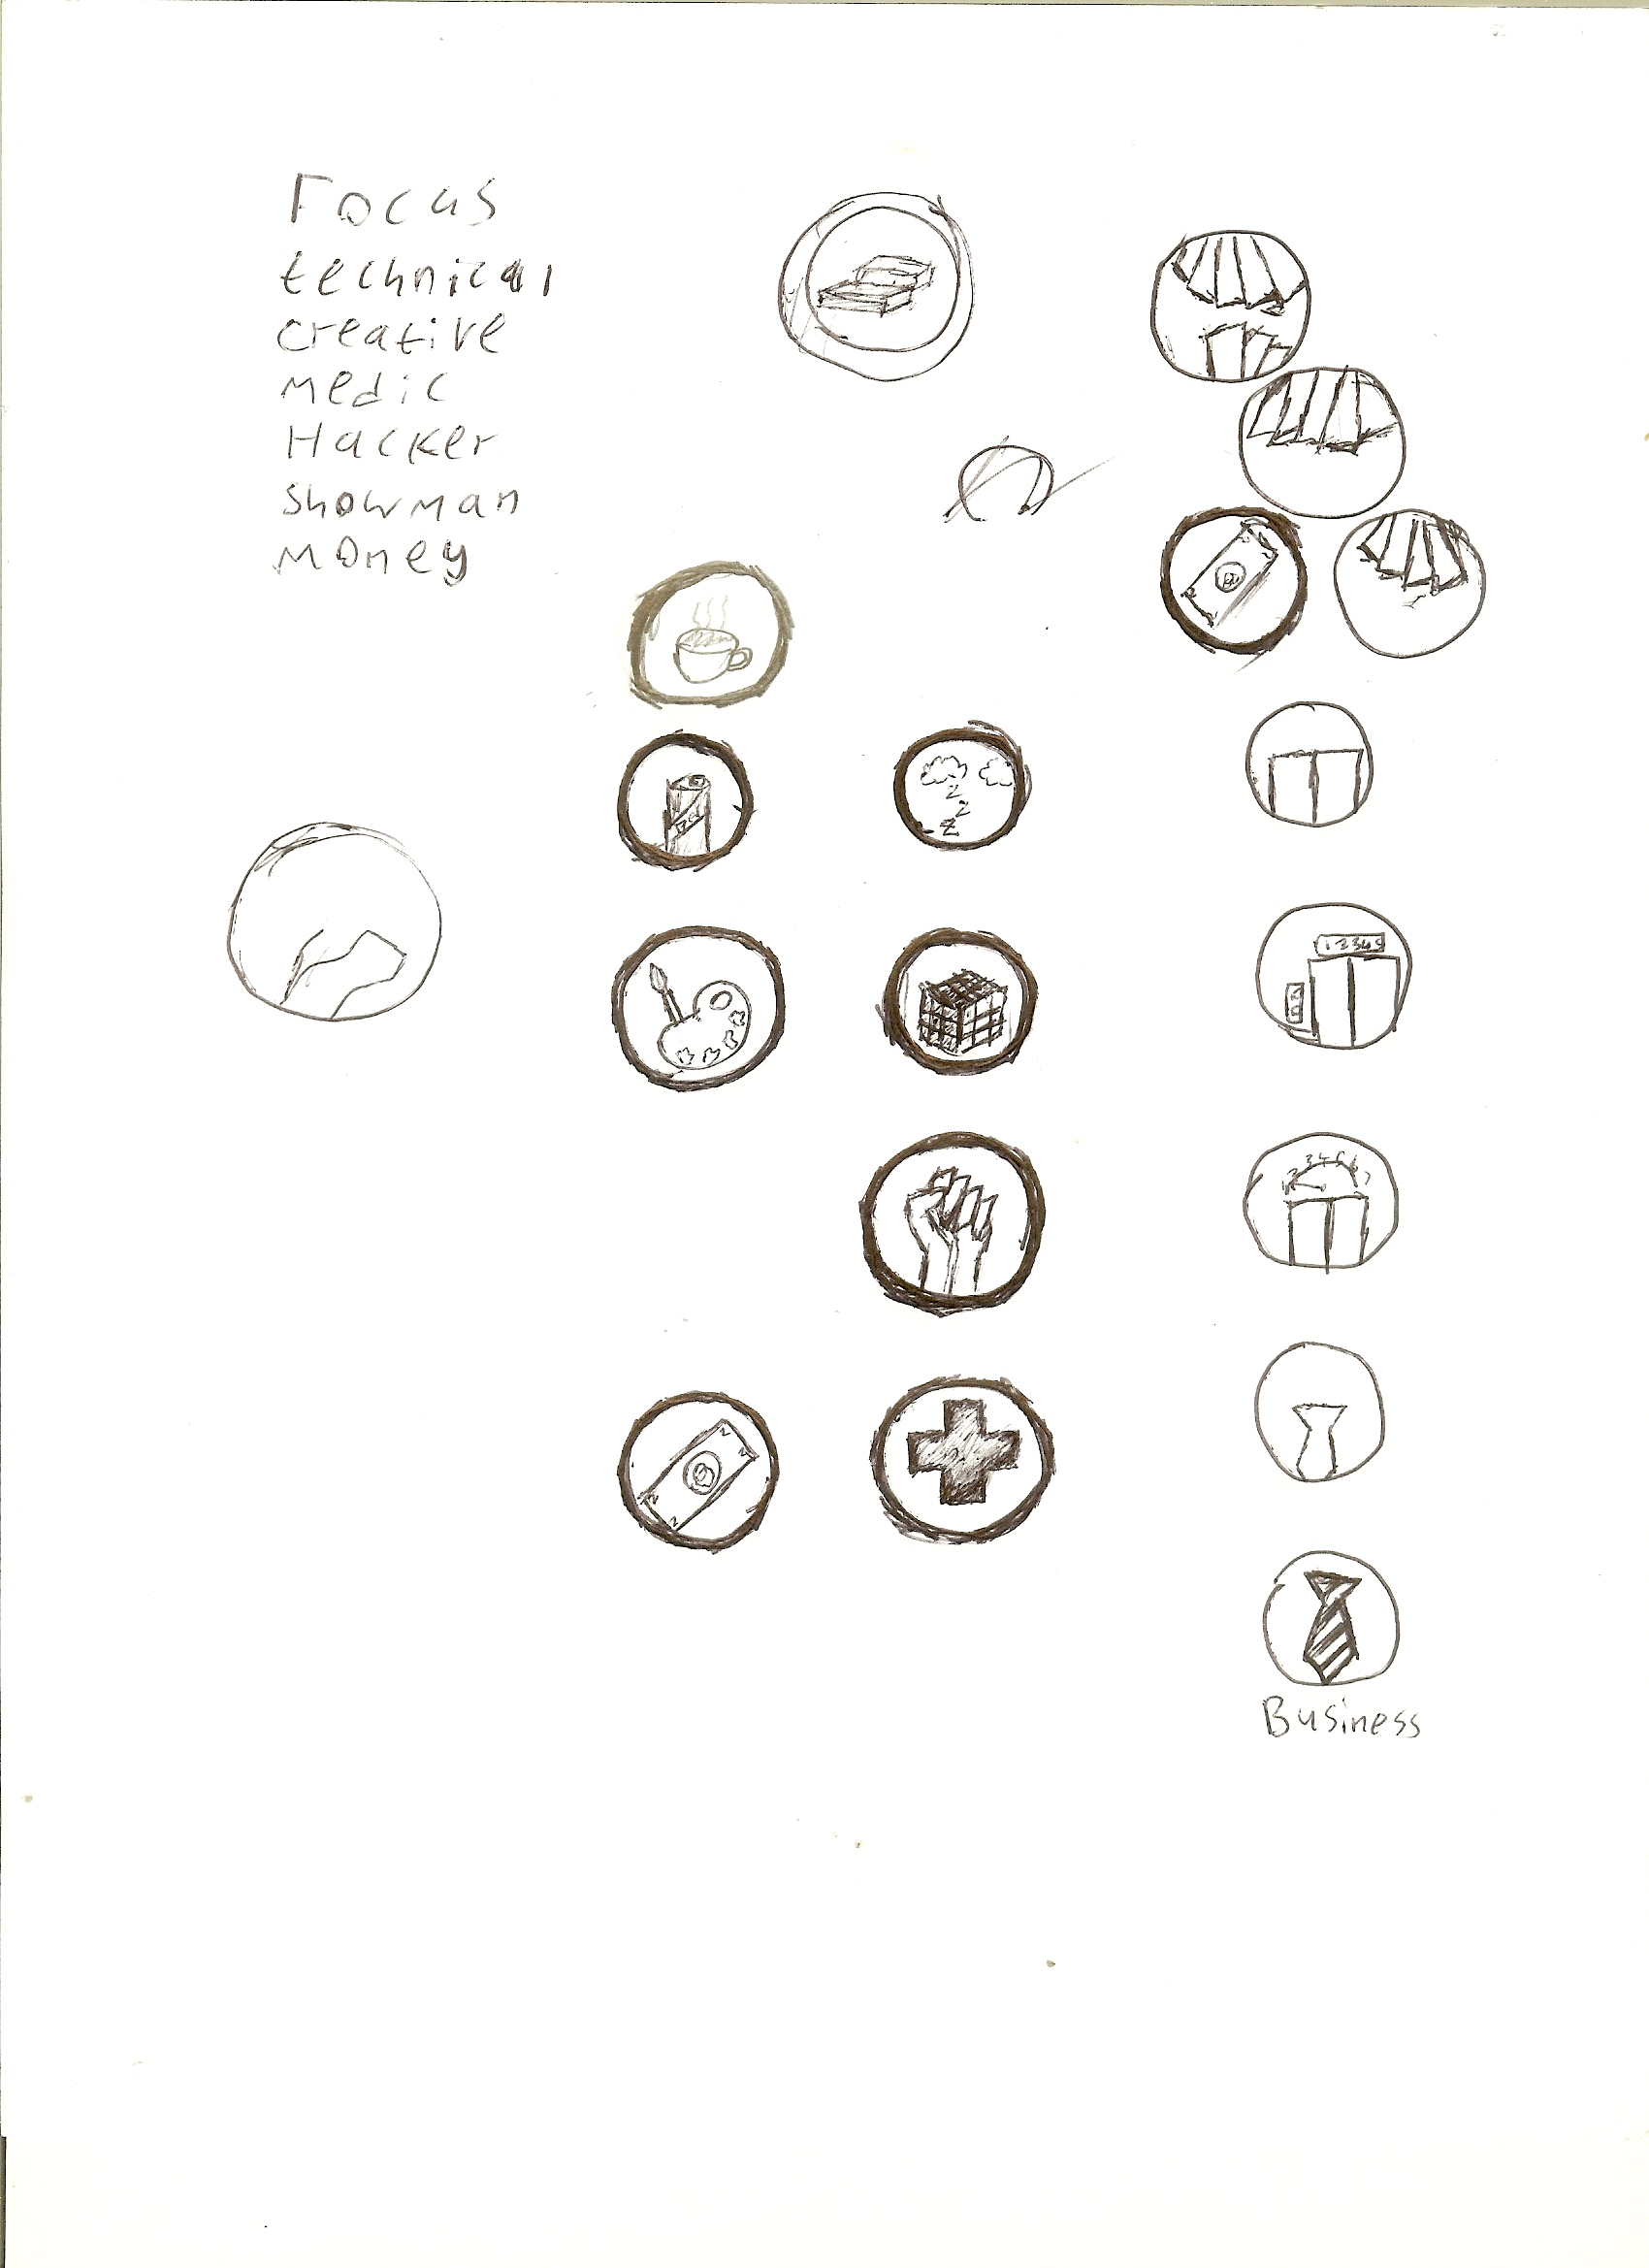 Focus
technical
creative
medic
Hacker
showman
money
z
z
z
12345
2
2
2
2
Business